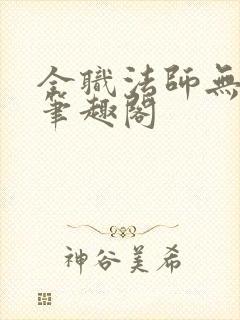 全職法師無
筆趣閣
神谷美希